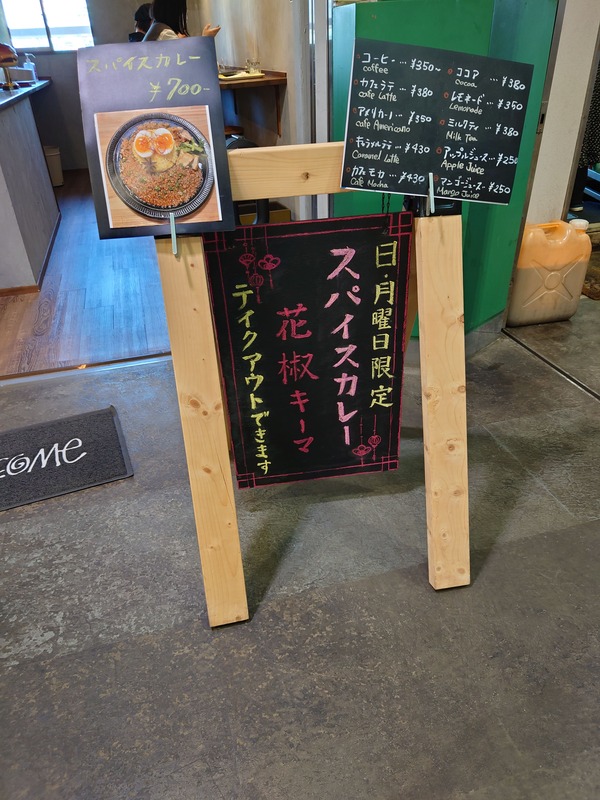 スパイスカレー
¥700-
コーヒー … ¥350~
coffee
カフェラテ … ¥380
cafe Latte
アメリカーノ … ¥350
cafe Americano
キャラメルラテ … ¥430
Caramel Latte
カフェモカ … ¥430
Cafe Mocha
ココア … ¥380
cocoa
レモネード … ¥350
Lemonade
ミルクティ … ¥380
Milk Tea
アップルジュース … ¥250
Apple Juice
マンゴージュース … ¥250
Mango Juice
日・月曜日限定
スパイスカレー
花椒キーマ
テイクアウトできます
COME